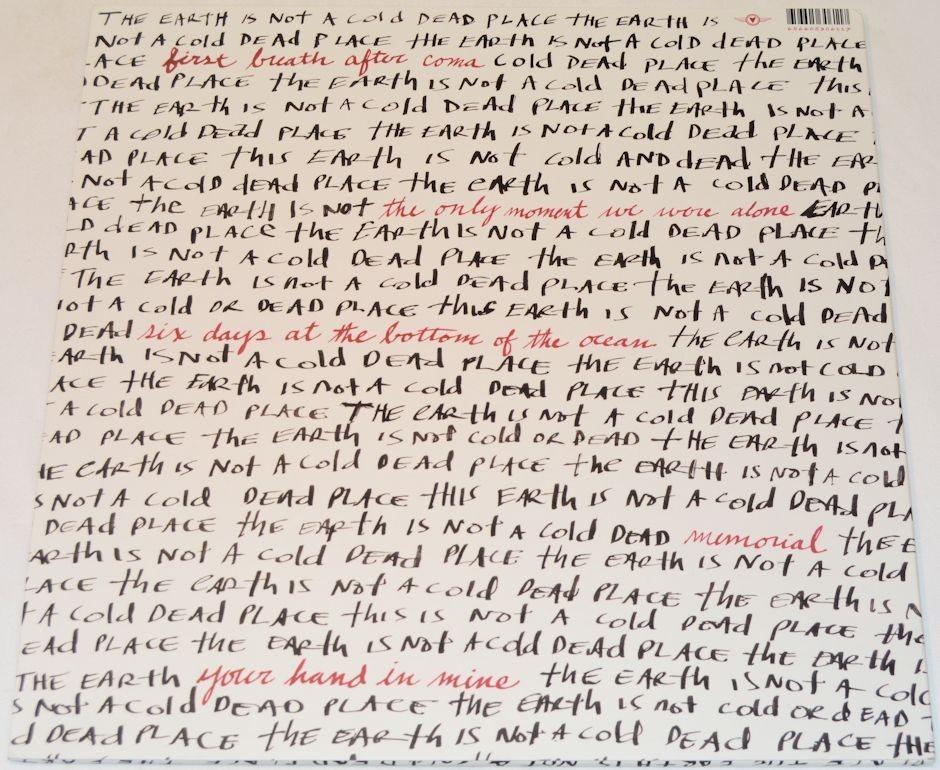 THE EARTH IS NOT A COld DEAD PLACE THE EARTH IS
NOt A Cold DEAd PLACE tHE EARth IS NotA COlD dEAD PLACE
ACE first breath after coma Cold DEAd PLACE the EARth
DEAd PLACE the EARth IS NOt A Cold DEAd PLACE this
THE EARth IS Not A Cold DEAd PLACE the EARth IS NOt A
T A Cold DEad PLACE tHE EARth IS NOt A Cold DEad PLACE
AD PLACE this EARth IS Not Cold AND dEAd tHE EAR
Not A COlD dEAd PLACE the eARth IS Not A Cold DEAD Pl
ACE the EARtH IS NOt the only moment we were alone EARtH
D dEAD PLACe the EARth IS NOt A Cold DEAD PLACE th
Rth IS NOt A Cold DEAd PLACE the EARth IS nOt A Cold
THE EARth IS not A Cold DEAd PLACE the EARth IS NOt
ot A Cold OR DEAD PLACE this EARth IS NOt A Cold DEAd
DEAd six days at the bottom of the ocean tHE EARth IS NOt
ARth IS NOt A Cold DEAD PLACE tHE EARth IS not COlD
ACE tHE EARth IS not A Cold DEAD PLACE tHIS EARth IS NOt
A Cold DEAD PLACE THE eARth IS NOt A Cold DEAD PLACE
AD PLACE the EARth IS NOt Cold OR DEAD tHE EARth IS not
HE EARth IS Not A Cold DEAd PLACE the EARtH IS NOt A Cold
S NOt A Cold DEAd PLACE tHIS EARth IS NOt A Cold DEAd PLA
DEAd PLACE the EARth IS NOt A Cold DEAD memorial thE E
ARth IS NOt A Cold DEAd PLACE the EARth IS NOt A Cold
LACE the EARth IS NOt A Cold DEAd PLACE the EARth IS N
t A Cold DEAd PLACE this IS NOt A Cold DEAd PLACE the
EAd PLACE the EARth IS NOt A Cold DEAd PLACE the EARth I
THE EARth your hand in mine the EARth IS NOt A Cold
S Not A Cold DEAD PLACE the EARth IS not Cold OR dEAD
d DEAd PLACE the EARth IS NOt A Cold DEAd PLACE tHE